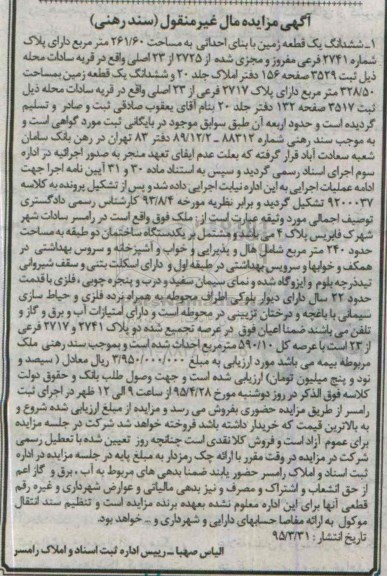 آگهی مزایده مال غیرمنقول (سند رهنی)
۱ـ ششدانگ یک قطعه زمین با بنای احداثی به مساحت ۲۶۱/۶۰ متر مربع دارای پلاک
شماره ۲۷۴۱ فرعی مفروز و مجزی شده از ۲۷۲۵ از ۲۳ اصلی واقع در قریه سادات محله
ذیل ثبت ۳۵۲۹ صفحه ۱۵۶ دفتر املاک جلد ۲۰ و ششدانگ یک قطعه زمین بمساحت
۳۲۸/۵۰ متر مربع دارای پلاک ۲۷۱۷ فرعی از ۲۳ اصلی واقع در قریه سادات محله ذیل
ثبت ۳۵۱۷ صفحه ۱۳۲ دفتر جلد ۲۰ بنام آقای یعقوب صادقی ثبت و صادر و تسلیم
گردیده است و حدود اربعه آن طبق سوابق موجود در بایگانی ثبت مورد گواهی است و
به موجب سند رهنی شماره ۸۸۳۱۲ ـ ۸۹/۱۲/۲ دفتر ۸۳ تهران در رهن بانک سامان
شعبه سعادت آباد قرار گرفته که بعلت عدم ایفای تعهد منجر به صدور اجرائیه در اداره
سوم اجرای اسناد رسمی گردید و سپس به استناد ماده ۳۰ و ۳۱ آیین نامه اجرا جهت
ادامه عملیات اجرایی به این اداره نیابت اجرایی داده شد و پس از تشکیل پرونده به کلاسه
۹۲۰۰۰۳۷ تشکیل گردید و برابر نظریه مورخه ۹۳/۸/۴ کارشناس رسمی دادگستری
توصیف اجمالی مورد وثیقه عبارت است از: ملک فوق واقع است در رامسر سادات شهر
شهرک قابریس پلاک ۴ می باشد و مشتمل بر یکدستگاه ساختمان دو طبقه به مساحت
حدود ۲۴۰ متر مربع شامل هال و پذیرایی و خواب و آشپزخانه و سرویس بهداشتی در
همکف و خوابها و سرویس بهداشتی در طبقه اول و دارای اسکلت بتنی و سقف شیروانی
تیذچرچه بلوم و ایزوگام شده و نمای سیمان سفید و درب و پنجره چوبی ، فلزی با قدمت
حدود ۲۲ سال دارای دیوار بلوکی اطراف محوطه به همراه نرده فلزی و حیاط سازی
سیمانی با باغچه و درختان تزیینی در محوطه است و دارای امتیازات آب و برق و گاز و
تلفن می باشند ضمنا اعیان فوق در عرصه تجمیع شده دو پلاک ۲۷۴۱ و ۲۷۱۷ فرعی
از ۲۳ است با عرصه کل ۵۹۰/۱۰ مترمربع احداث شده است و بموجب سند رهنی ملک
مربوطه بیمه می باشد مورد ارزیابی به مبلغ ۳/۹۵۰/۰۰۰/۰۰۰ ریال معادل ( سیصد و
نود و پنج میلیون تومان) ارزیابی شده است و جهت وصول طلب بانک و حقوق دولت
کلاسه فوق الذکر در روز دوشنبه مورخ ۹۵/۴/۲۸ از ساعت ۹ الی ۱۲ ظهر در اجرای ثبت
رامسر از طریق مزایده حضوری بفروش می رسد و مزایده از مبلغ ارزیابی شده شروع و
به بالاترین قیمت که خریدار داشته باشد فروخته خواهد شد شرکت در جلسه مزایده
برای عموم آزاد است و فروش کلا نقدی است چنانچه روز تعیین شده با تعطیل رسمی
شرکت در مزایده در وقت مقرر با ارائه چک رمزدار به مبلغ پایه در جلسه مزایده در اداره
ثبت اسناد و املاک رامسر حضور یابند ضمنا بدهی های مربوط به آب ، برق و گاز اعم
از حق انشعاب و اشتراک و مصرف و نیز بدهی مالیاتی و عوارض شهرداری و غیره رقم
قطعی آنها برای این اداره معلوم نشده بعهده برنده مزایده است و تنظیم سند انتقال
موکول به ارائه مفاصا حسابهای دارایی و شهرداری و ... خواهد بود.
تاریخ انتشار: ۹۵/۳/۳۱
الیاس صهبا ـ رییس اداره ثبت اسناد و املاک رامسر